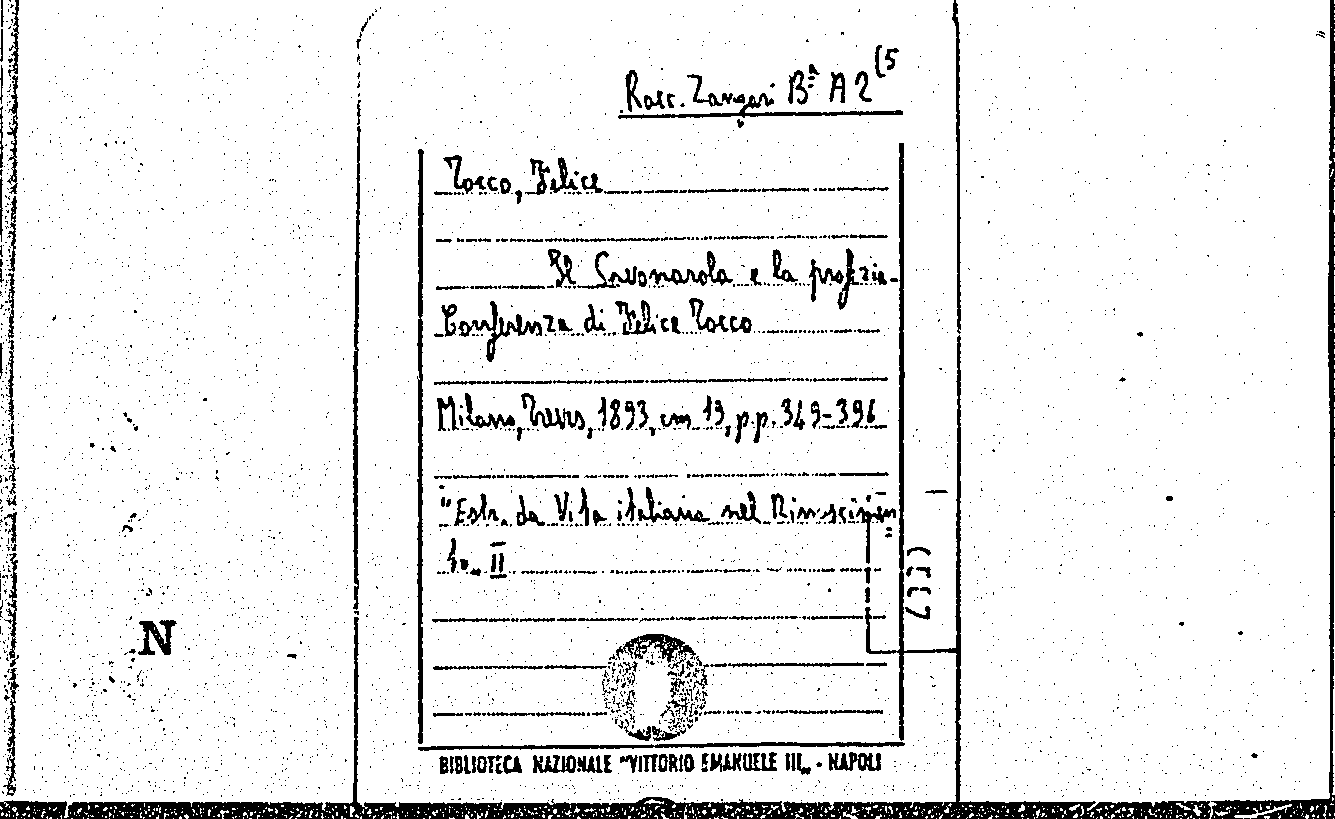 Racc. Zangari Bª A 2 (5
Tocco, Felice
Il Savonarola e la profezia.
Conferenza di Felice Tocco
Milano, Treves, 1893, cm 19, pp. 349-396
"Estr. da Vita italiana nel Rinascimen
to„ II
N
BIBLIOTECA NAZIONALE "VITTORIO EMANUELE III„ - NAPOLI